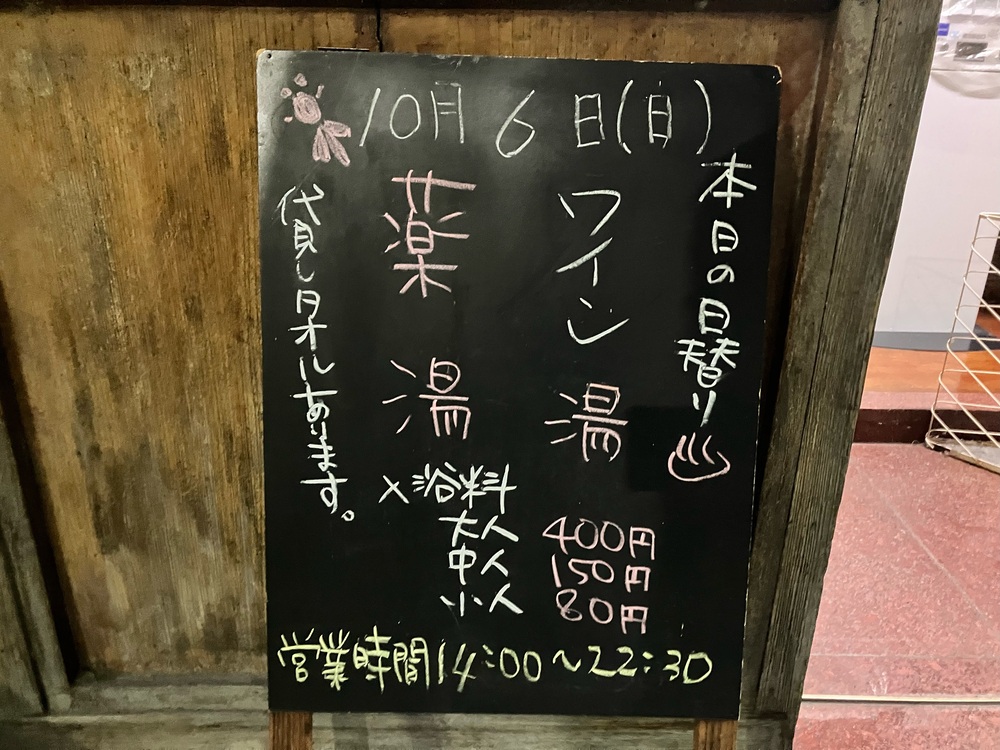 10月6日(日)
本日の日替り♨
ワイン湯
薬湯
貸しタオルあります。
入浴料
大人 400円
中人 150円
小人 80円
営業時間14:00~22:30